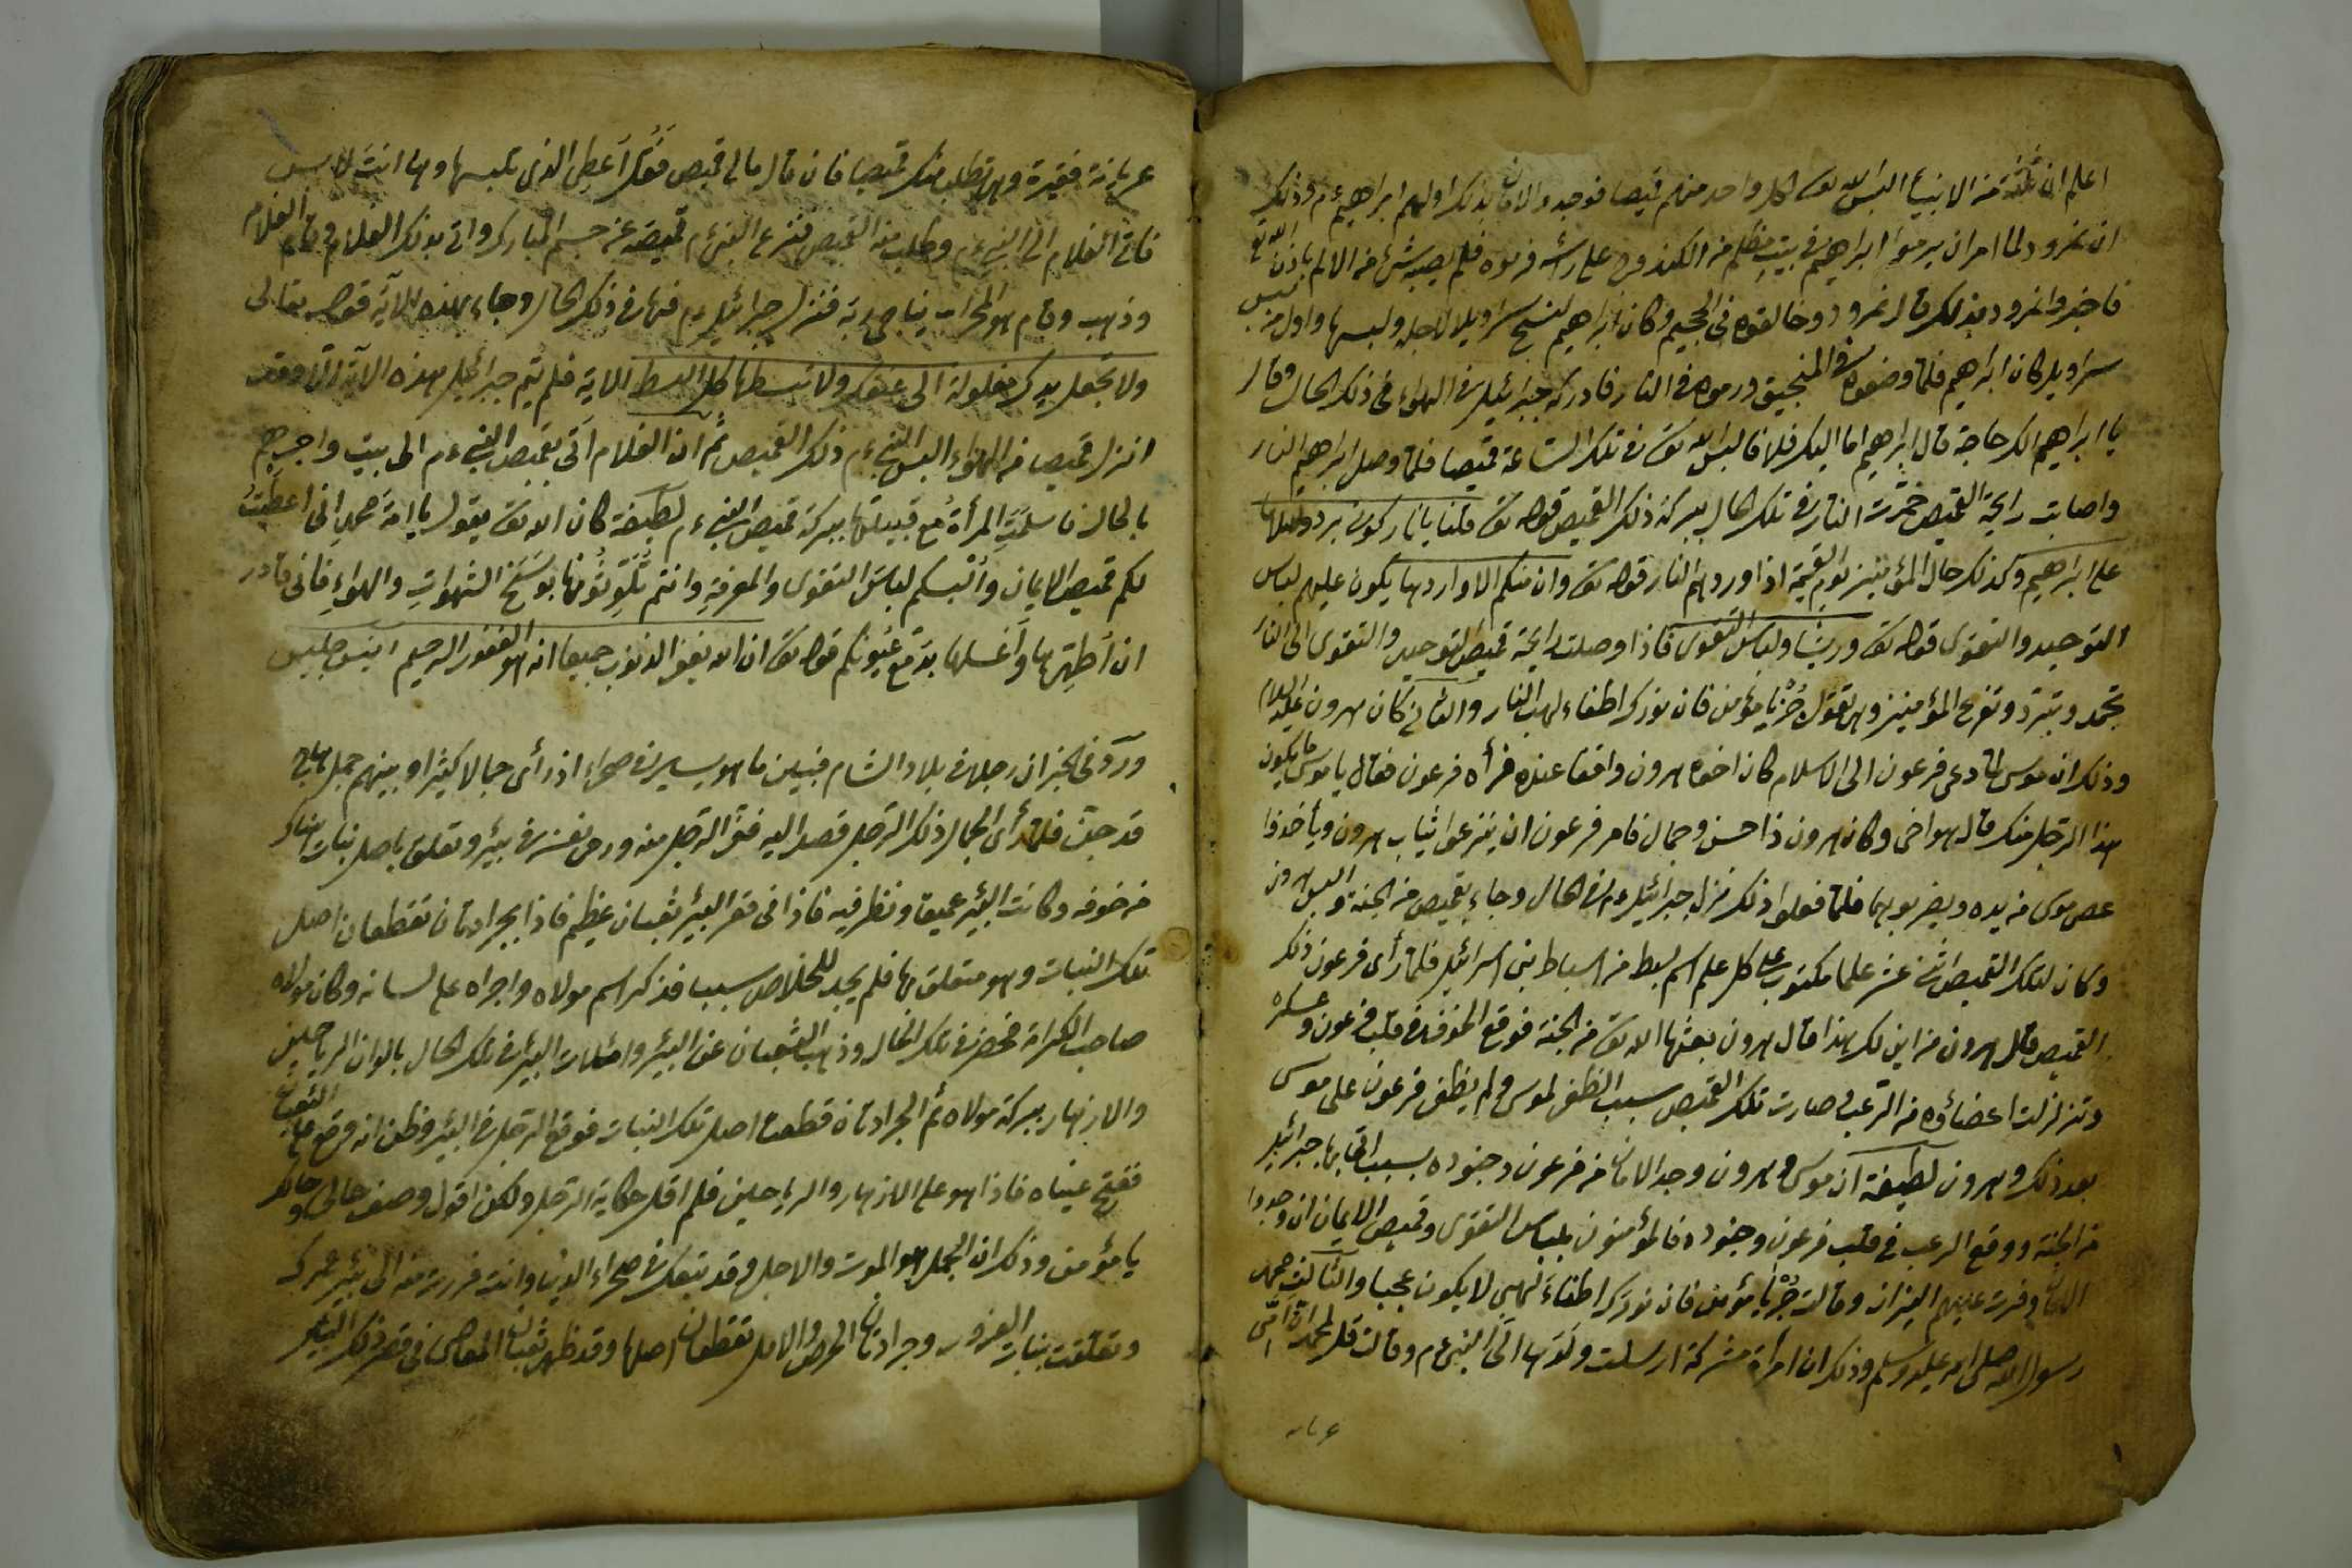 اعلم ان ثلثة من الانبياء البس الله تع كل واحد منهم قميصا فوجدوا الامان بذلك اولهم ابراهيم ءم وذلك
ان نمرود لما امر ان يرموا ابراهيم في بيت مظلم من على رأسه فرموه فلم يصبه شئ من الالم باذن الله تع
فاخبروا نمرود بذلك قال نمرود وخالقوه في الجحيم وكان ابراهيم لنسج سراويلا لاجله ولبسها واول من لبس
سراويل كان ابراهيم فلما وضعوه في المنجنيق ورموه في النار فادركه جبرائيل في الهواء في ذلك الحال وقال
يا ابراهيم الك حاجة قال ابراهيم اما اليك فلا فالبس الله تع في تلك الساعة قميصا فلما وصل ابراهيم النار
واصابت رايحة القميص خمدت النار في تلك الحال ببركة ذلك القميص قوله تع قلنا يا نار كوني بردا وسلاما
على ابراهيم وكذلك حال المؤمنين يوم القيمة اذا وردهم النار قوله تع وان منكم الا واردها يكون عليهم لباس
التوحيد والتقوى قوله تع وريشا ولباس التقوى فاذا وصلت رايحة قميص التوحيد والتقوى الى النار
تخمد وتبرد وتفرح المؤمنين وهي تقول جز يا مؤمن فان نورك اطفاء لهب النار والثاني كان هرون عليه السلام
وذلك ان موسى لما دعى فرعون الى الاسلام كان اخوه هرون واقفا عنده فرأه فرعون فقال يا موسى ما يكون
هذا الرجل منك قال هو اخى وكان هرون ذا حسن وجمال فامر فرعون ان ينزعوا ثياب هرون ويأخذوا
عصى موسى من يده ويضربو بهما فلما فعلوا ذلك نزل جبرائيل ءم في الحال وجاء بقميص من الجنة والبس هرون
وكان لتلك القميص اثنى عشر علما مكتوب على كل علم اسم سبط من اسباط بنى اسرائيل فلما رأى فرعون ذلك
القميص قال هرون من اين لك هذا قال هرون بعثها الله تع من الجنة فوقع الخوف في قلب فرعون وعسكره
وتزلزلت اعضاؤه من الرعب وصارت تلك القميص سبب الظفر لموسى ولم يظفر فرعون على موسى
بعد ذلك وهرون لطيفة ان موسى وهرون وجد الامان من فرعون وجنوده بسبب اتى بها جبرائيل
من الجنة ووقع الرعب في قلب فرعون وجنوده فالمؤمنون بلباس التقوى وقميص الايمان ان وجدوا
الامان وفرت عنهم النيران وقالت جز يا مؤمن فان نورك اطفاء لهبى لا يكون عجبا والثالث محمد
رسول الله صلى الله عليه وسلم وذلك ان امرأة مشركة ارسلت ولدها الى النبى ءم وقالت قل لمحمد ان امى
عريانة
عريانة فقيرة وهي تطلب منك قميصا فان قال مالى قميص فقل اعطى الذى تلبسها وها انت لابس
فاتى الغلام الى النبى ءم وطلب منه القميص فنزع النبى ءم قميصه عن جسم المبارك واتى به ذلك الغلام وقام الغلام
وذهب وقام هو المحراب يناجى ربه فنزل جبرائيل ءم في ذلك الحال وجاء بهذه الاية قوله تعالى
ولا تجعل يدك مغلولة الى عنقك ولا تبسطها كل البسط الاية فلم يتم جبرائيل هذه الآية الا وقد
انزل قميصا من الهواء البس النبى ءم ذلك القميص ثم ان الغلام اتى بقميص النبى ءم الى بيت واخبرهم
بالحال فاسلمت المرأة مع قبيلتها ببركة قميص النبى ءم لطيفة كان الله تع يقول يا امة محمد انى اعطيت
لكم قميص الايمان والبسكم لباس التقوى والمعرفة وانتم تلوثونها بوسخ الشهوات والهواء فانى قادر
ان اطهرها واغسلها بدمع عيونكم قوله تع ان الله يغفر الذنوب جميعا انه هو الغفور الرحيم
وروى في الخبر ان رجلا في بلاد الشام فبين ما هو يسير في صحراء اذ رأى جمالا كثيرا وبينهم جمل هايج
قد جن فلما رأى الجمال ذلك الرجل قصد اليه ففر الرجل منه ورمى نفسه في بئر وتعلق باصل نبات هناك
من خوفه وكانت البئر عميقا ونظر فيه فاذا في قعر البئر ثعبان عظيم فاذا بجرادتان تقطعان اصل
تلك النبات وهو متعلق بها فلم يجد للخلاص سببا فذكر اسم مولاه واجراه على لسانه وكان مولاه
صاحب الكرامة فحضر في تلك الحال وذهب الثعبان عن البئر وامتلات البئر في تلك الحال بالوان الرياحين
والازهار ببركة مولاه ثم الجرادتان قطعت اصل تلك النبات فوقع الرجل في البئر وظن انه وقع على الثعبان
ففتح عيناه فاذا هو على الازهار والرياحين فلم اقل حكاية الرجل ولكن اقول وصف حالى وحالك
يا مؤمن وذلك ان الجمل هو الموت والاجل وقد يتبعك في صحراء الدنيا وانت فررت منه الى بئر عمرك
وتعلقت بنبات الغرور وجرادتان الحرص والامل تقطعان اصلها وقد ظهر ثعبان المعاصى في قعر ذلك البئر